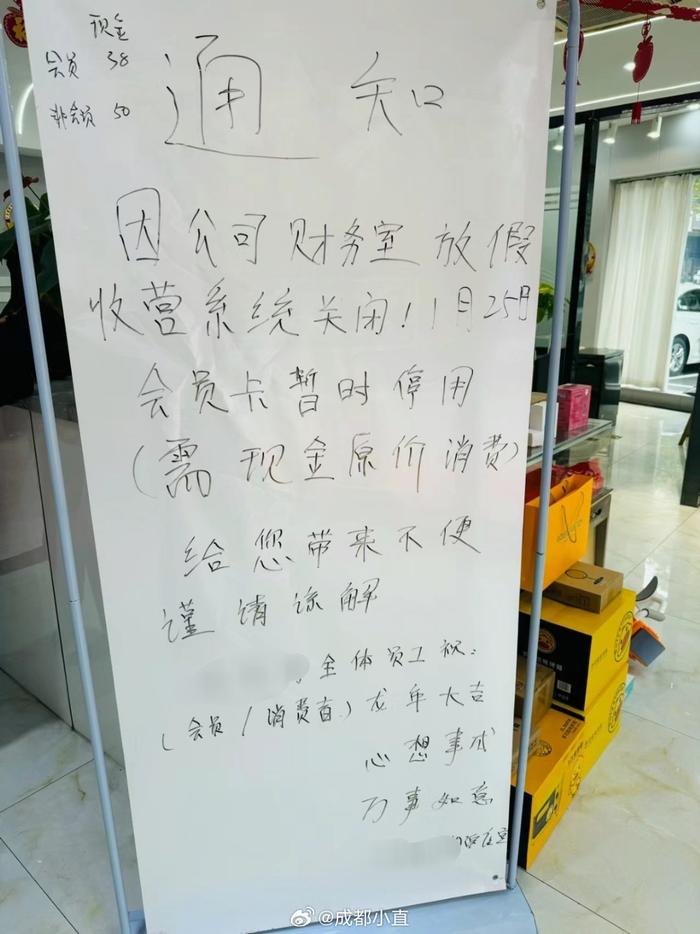 现金
会员 38
非会员 50
通知
因公司财务室放假
收营系统关闭！1月25日
会员卡暂时停用
（需现金原价消费）
给您带来不便
谨请谅解
全体员工祝：
（会员/消费者）龙年大吉
心想事成
万事如意
@成都小直